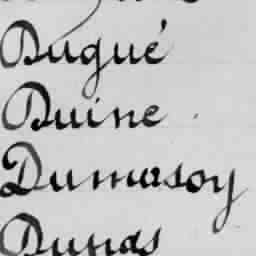 Dugué
Duine
Dumasoy
Dunas